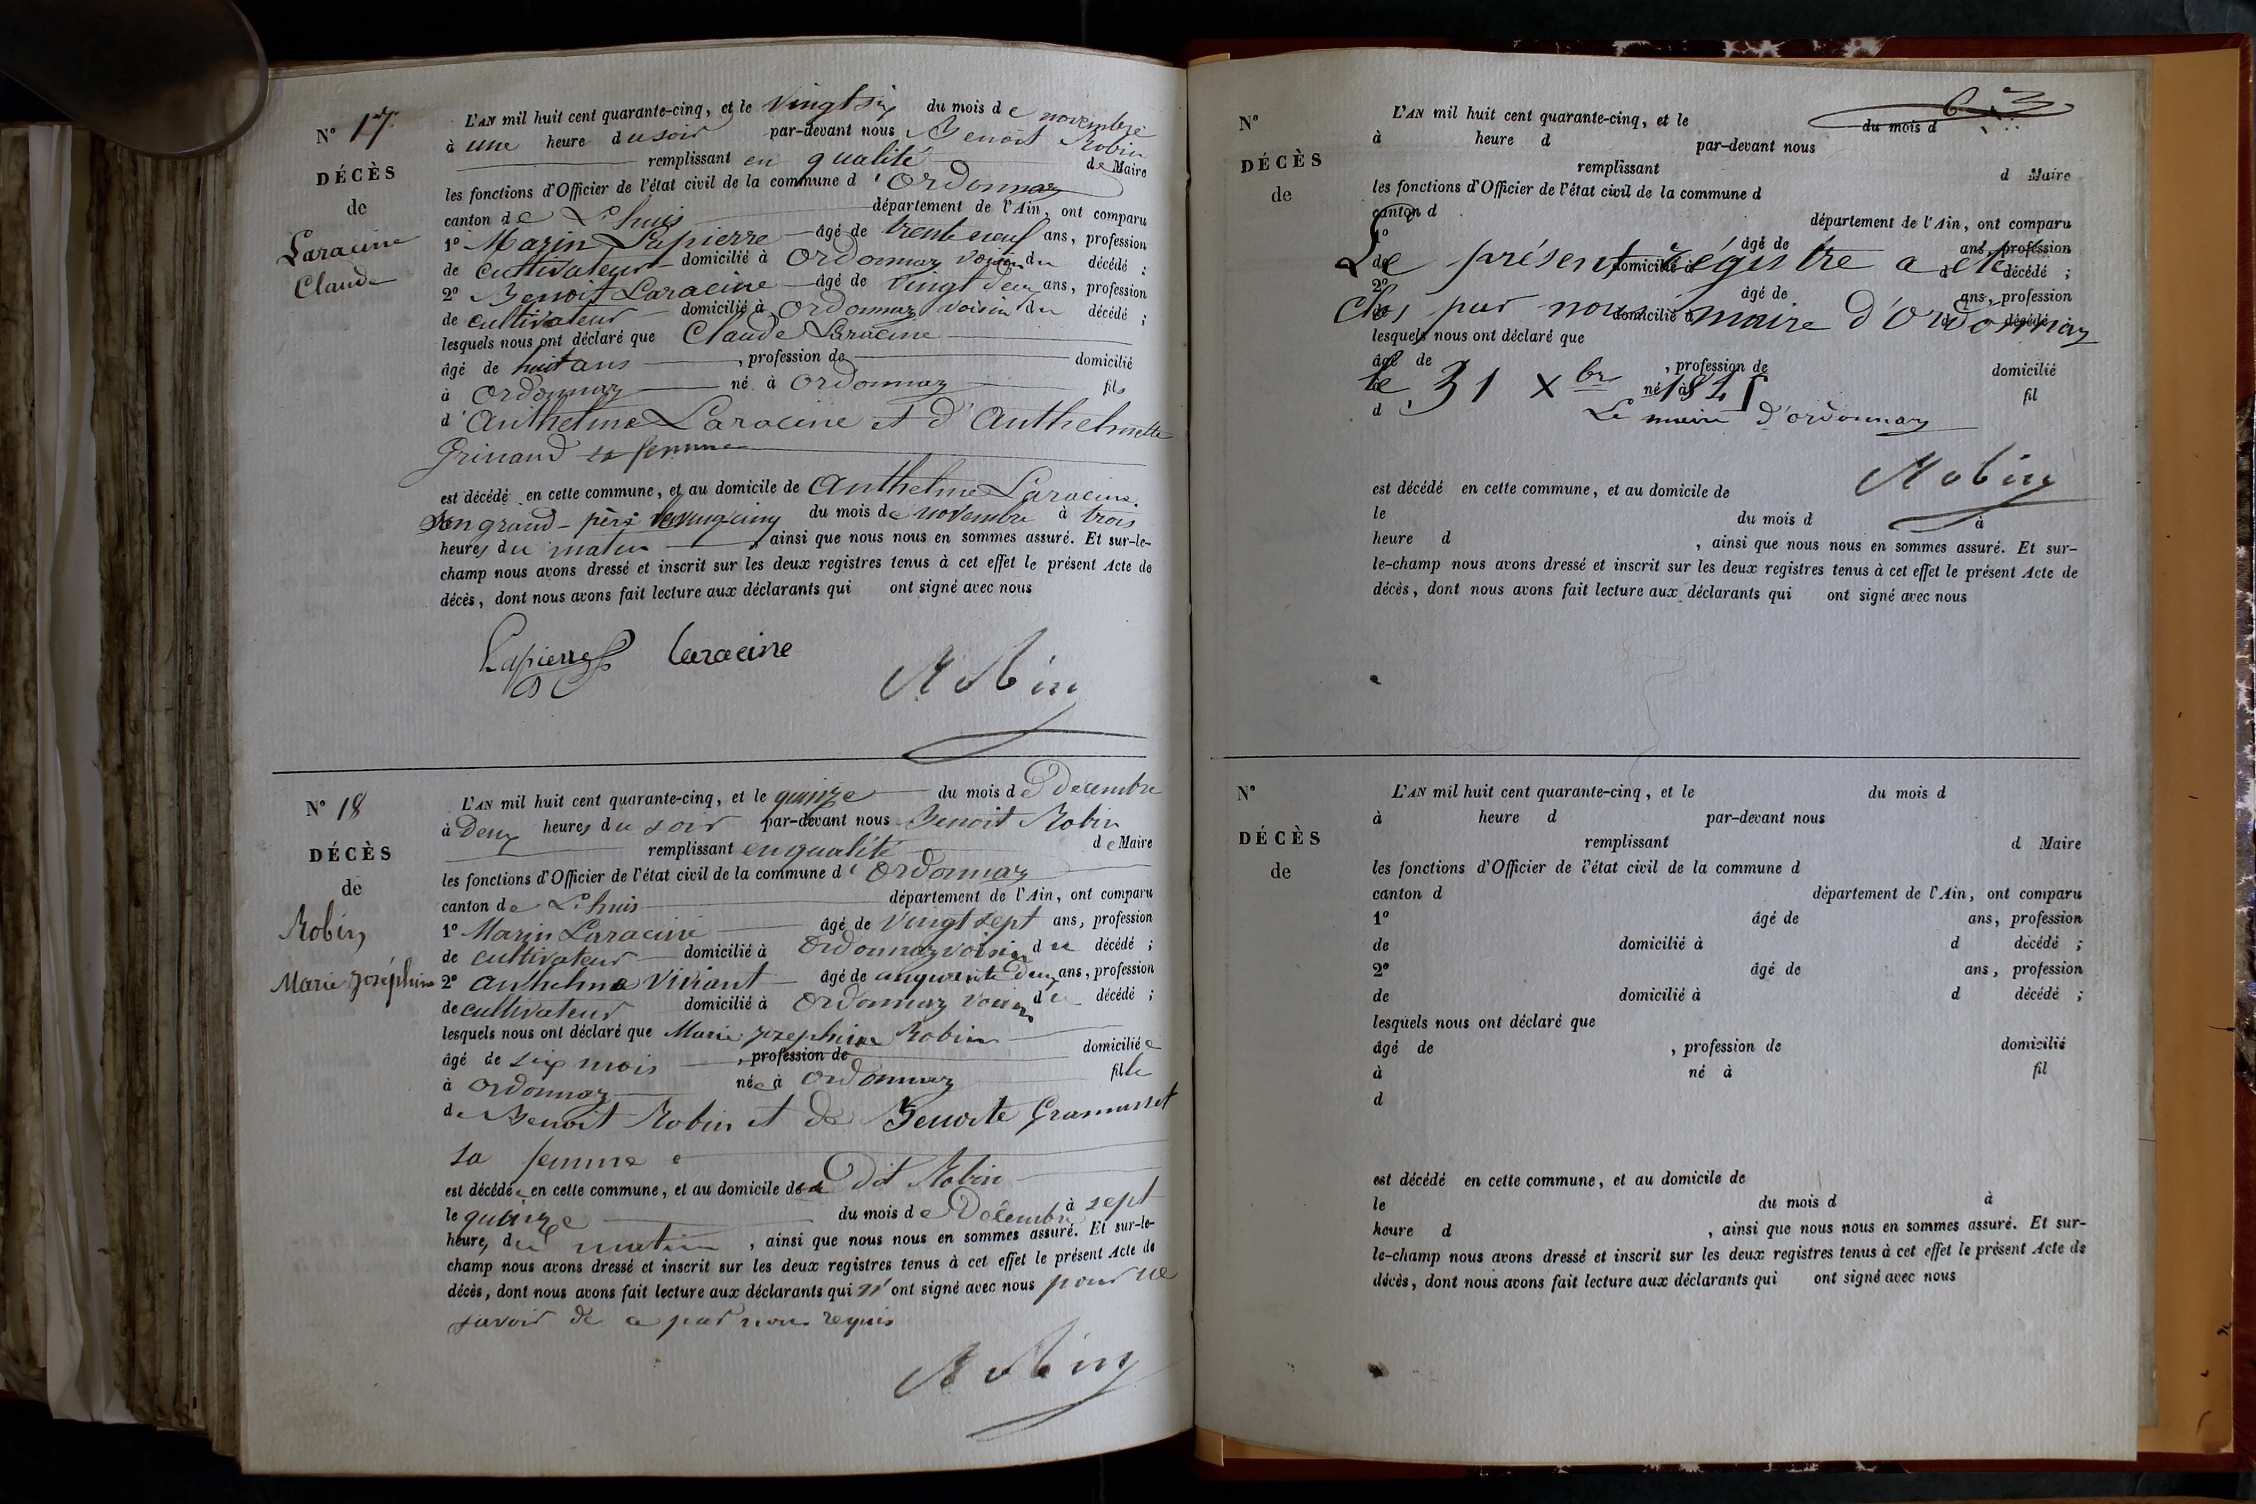 N° 17.
DÉCÈS
de
Laracine
Claude
L'AN mil huit cent quarante-cinq, et le vingt six du mois de novembre
à une heure du soir par-devant nous Benoit Robin
remplissant en qualité de Maire
les fonctions d'Officier de l'état civil de la commune d'Ordonnaz
canton de L'huis département de l'Ain, ont comparu
1° Marin Lapierre âgé de trente neuf ans, profession
de cultivateur domicilié à Ordonnaz voisin du décédé ;
2° Benoit Laracine âgé de vingt deux ans, profession
de cultivateur domicilié à Ordonnaz voisin du décédé ;
lesquels nous ont déclaré que Claude Laracine
âgé de huit ans , profession de domicilié
à Ordonnaz né à Ordonnaz fils
d'Anthelme Laracine et d'Anthelmette
Grinand sa femme
est décédé en cette commune, et au domicile de Anthelme Laracine
son grand-père le vingt cinq du mois de novembre à trois
heures du matin , ainsi que nous nous en sommes assuré. Et sur-le-
champ nous avons dressé et inscrit sur les deux registres tenus à cet effet le présent Acte de
décès, dont nous avons fait lecture aux déclarants qui ont signé avec nous
Lapierre Laracine
Robin
N° 18
DÉCÈS
de
Robin
Marie Joséphine
L'AN mil huit cent quarante-cinq, et le quinze du mois de Décembre
à Deux heures du soir par-devant nous Benoit Robin
remplissant en qualité de Maire
les fonctions d'Officier de l'état civil de la commune d'Ordonnaz
canton de L'huis département de l'Ain, ont comparu
1° Marin Laracine âgé de vingt sept ans, profession
de cultivateur domicilié à Ordonnaz voisin du décédé ;
2° Anthelme Viviant âgé de cinquante deux ans, profession
de cultivateur domicilié à Ordonnaz voisin du décédé ;
lesquels nous ont déclaré que Marie Jozephine Robin
âgé de six mois , profession de domiciliée
à Ordonnaz née à Ordonnaz fille
de Benoit Robin et de Benoite Gramusset
sa femme
est décédée en cette commune, et au domicile de Dit Robin
le quinze du mois de Décembre à sept
heures du matin , ainsi que nous nous en sommes assuré. Et sur-le-
champ nous avons dressé et inscrit sur les deux registres tenus à cet effet le présent Acte de
décès, dont nous avons fait lecture aux déclarants qui n'ont signé avec nous pour ne
savoir de ce par nous requis
Robin
63
N°
DÉCÈS
de
L'AN mil huit cent quarante-cinq, et le du mois d
à heure d par-devant nous
remplissant d Maire
les fonctions d'Officier de l'état civil de la commune d
canton d département de l'Ain, ont comparu
1° âgé de ans, profession
de domicilié à d décédé ;
Le présent régistre a été
2° âgé de ans, profession
de domicilié à d décédé ;
clos par nous maire d'Ordonnaz
lesquels nous ont déclaré que
âgé de , profession de domicilié
à né à fil
le 31 Xbre 1845
d
Le maire d'ordonnaz
Robin
est décédé en cette commune, et au domicile de
le du mois d à
heure d , ainsi que nous nous en sommes assuré. Et sur-
le-champ nous avons dressé et inscrit sur les deux registres tenus à cet effet le présent Acte de
décès, dont nous avons fait lecture aux déclarants qui ont signé avec nous
N°
DÉCÈS
de
L'AN mil huit cent quarante-cinq, et le du mois d
à heure d par-devant nous
remplissant d Maire
les fonctions d'Officier de l'état civil de la commune d
canton d département de l'Ain, ont comparu
1° âgé de ans, profession
de domicilié à d décédé ;
2° âgé de ans, profession
de domicilié à d décédé ;
lesquels nous ont déclaré que
âgé de , profession de domicilié
à né à fil
d
est décédé en cette commune, et au domicile de
le du mois d à
heure d , ainsi que nous nous en sommes assuré. Et sur-
le-champ nous avons dressé et inscrit sur les deux registres tenus à cet effet le présent Acte de
décès, dont nous avons fait lecture aux déclarants qui ont signé avec nous